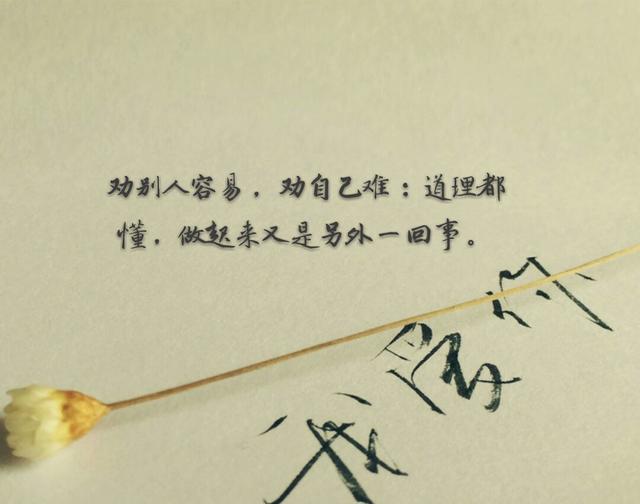 劝别人容易，劝自己难：道理都
懂，做起来又是另外一回事。